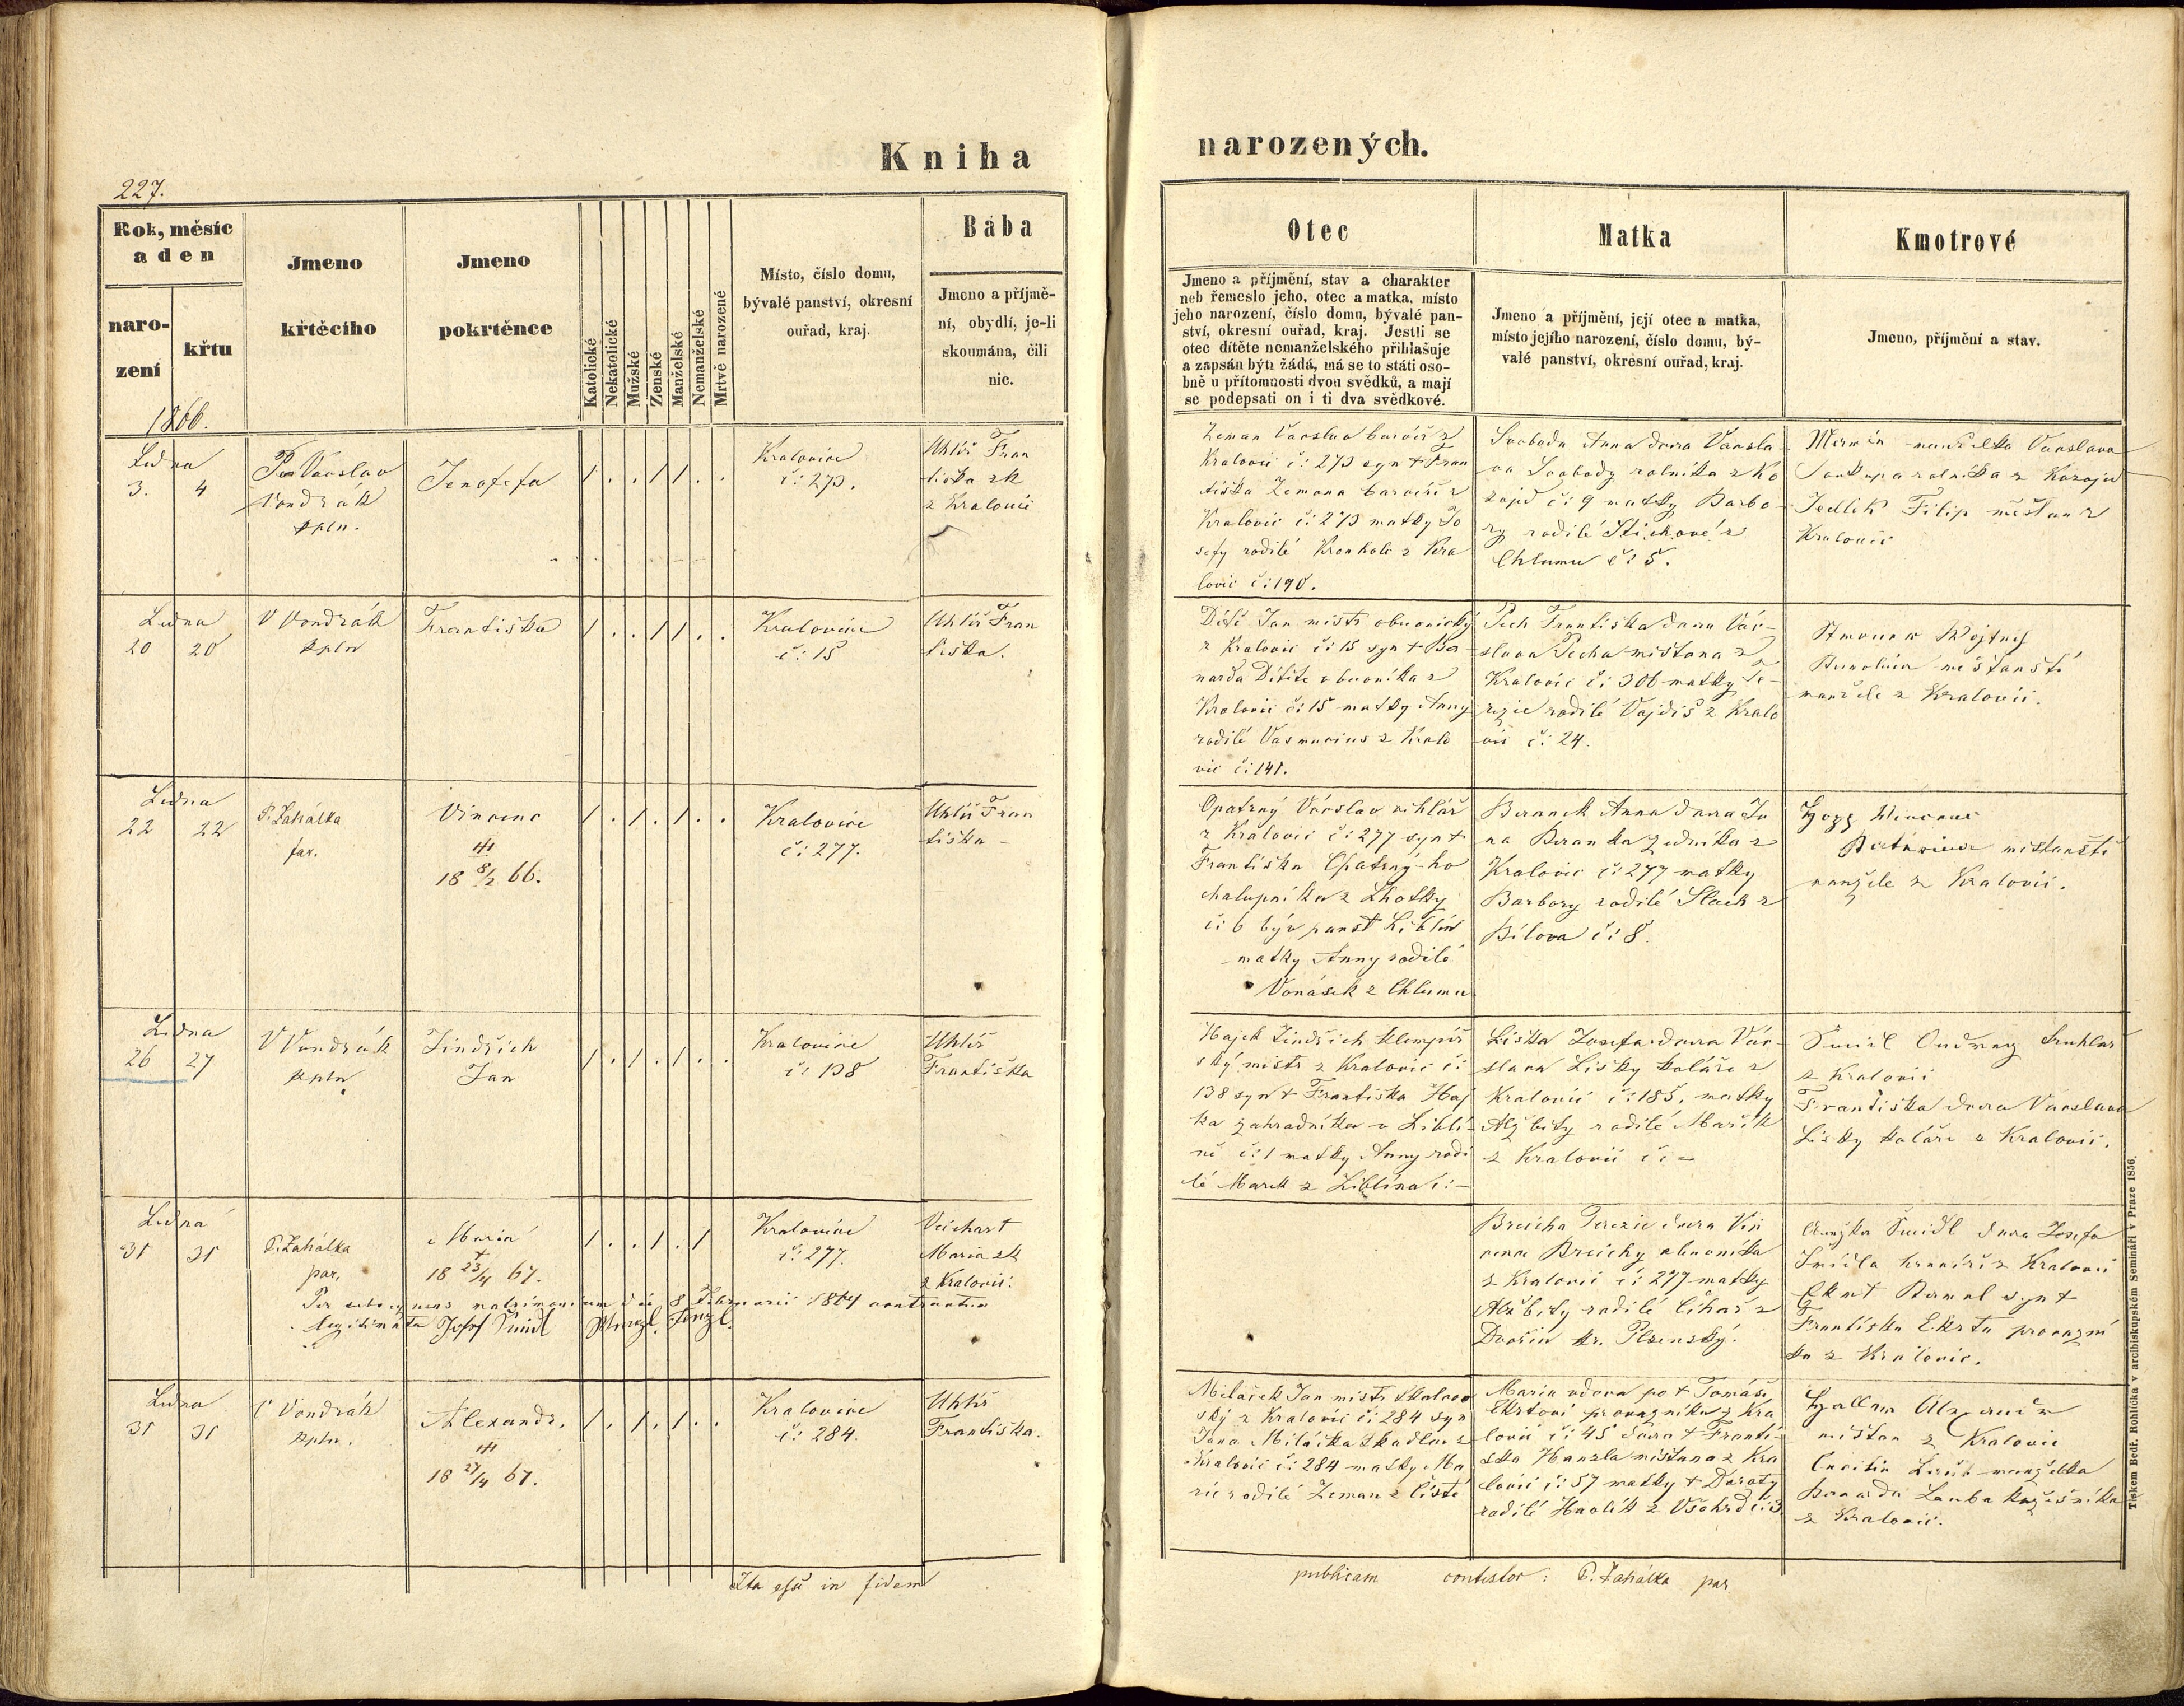 Kniha narozených.
227.
Rok, měsíc
a den
naro-
zení
křtu
Jmeno
křtěcího
Jmeno
pokrtěnce
Katolické
Nekatolické
Mužské
Ženské
Manželské
Nemanželské
Mrtvě narozené
Místo, číslo domu,
bývalé panství, okresní
ouřad, kraj.
Bába
Jmeno a příjmě-
ní, obydlí, je-li
skoumána, čili
nic.
Otec
Jmeno a příjmění, stav a charakter
neb řemeslo jeho, otec a matka, místo
jeho narození, číslo domu, bývalé pan-
ství, okresní ouřad, kraj. Jestli se
otec dítěte nemanželského přihlašuje
a zapsán býti žádá, má se to státi oso-
bně u přítomnosti dvou svědků, a mají
se podepsati on i ti dva svědkové.
Matka
Jmeno a příjmění, její otec a matka,
místo jejího narození, číslo domu, bý-
valé panství, okresní ouřad, kraj.
Kmotrové
Jmeno, příjmění a stav.
1866.
Ledna
3. 4
Vácslav
Vondrák
kpln.
Jenofefa
Kralovice
č: 273.
Uhlíř Fran
tiška zk
z Kralovic
Zeman Vácslav barvíř z
Kralovic č: 273 syn + Fran
tiška Zemana barvíře z
Kralovic č: 273 matky Jo
sefy rodilé Kronhole z Kra
lovic č: 190.
Svoboda Anna dcera Vácsla-
va Svobody rolníka z Ko
zojed č: 9 matky Barbo-
ry rodilé z
Chlumu č: 5.
manželka Vácslava
Soukupa rolníka z Kozojed
Jedlík Filip měšťan z
Kralovic
Ledna
20 20
V Vondrák
kpln
Františka
Kralovice
č: 15
Uhlíř Fran
tiška.
Dítě Jan mistr obuvnický
z Kralovic č: 15 syn + Ber-
narda Dítěte obuvníka z
Kralovic č: 15 matky Anny
rodilé Vasmucius z Kralo
vic č: 141.
Pech Františka dcera Vác-
slava Pecha měšťana z
Kralovic č: 306 matky Te-
rezie rodilé Vojdiš z Kralo
vic č: 24.
měšťanští
manželé z Kralovic.
Ledna
22 22
P. Zahálka
far.
Vincenc
18 8/2 66.
Kralovice
č: 277.
Uhlíř Fran
tiška -
Opatrný Vácslav cihlář
z Kralovic č: 277 syn +
Františka Opatrný-ho
chalupníka z Lhotky
č: 6 býv panst Liblín
matky Anny rodilé
Vonásek z Chlumu
Beranek Anna dcera Ja
na Beranka zedníka z
Kralovic č: 277 matky
Barbory rodilé Slach z
Bílova č: 8.
měšťanští
manželé z Kralovic.
Ledna
26 27
V Vondrák
kpln
Jindřich
Jan
Kralovice
č: 138
Uhlíř
Františka
Hajek Jindřich klempíř
ský mistr z Kralovic č:
138 syn + Františka Haj
ka zahradníka v Liblí
ně č: 1 matky Anny rodi
lé Marek z Liblína č: -
Liška Josefa dcera Vác-
slava Lišky koláře z
Kralovic č: 185. matky
Alžběty rodilé Mařík
z Kralovic č: -
Šmidl Ondrzey truhlář
z Kralovic
Františka dcera Vácslava
Lišky koláře z Kralovic.
Ledna
31 31
P. Zahálka
par.
Maria
+
18 23/4 67.
Kralovice
č: 277.
Veichart
Maria zk
z Kralovic.
Per subsequens matrimonium die 8 Februarii 1864
legitimata Josef Šmidl
Breicha Terezie dcera Vin
cence Breichy obuvníka
z Kralovic č: 277 matky
Alžběty rodilé Cihař z
kr. Plzenský.
Anežka Šmidl dcera Josefa
Šmídla z Kralovic
Ekrt Karel syn +
Františka Ekrta provazní
ka z Kralovic.
Ledna
31 31
V Vondrák
kpln.
Alexandr.
18 27/4 67.
Kralovice
č: 284.
Uhlíř
Františka.
Milaček Jan mistr tkalcov
ský z Kralovic č: 284 syn
Jana Miláčka tkadlce z
Kralovic č: 284 matky Ma
rie rodilé Zeman z Čisté
Maria vdova po + Tomáši
Ekrtovi provazníku z Kra
lovic č: 45 dcera + Franti-
ška Hanzla měšťana z Kra
lovic č: 57 matky + Doroty
rodilé Havlík z Všehrd č: 3.
měšťan z Kralovic
manželka
z Kralovic.
Ita esse in fidem publicam contestor: P. Zahálka par
Tiskem Bedř. Rohlíčka v arcibiskupském Semináři v Praze 1856.